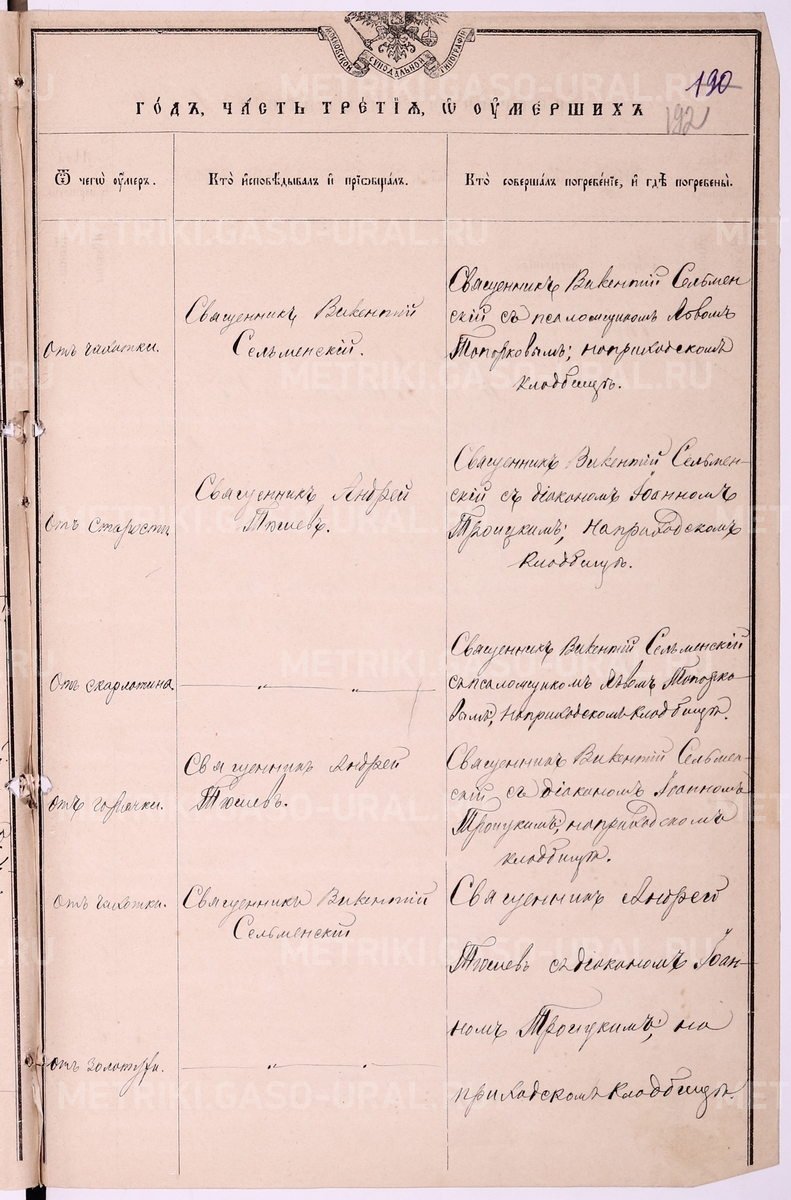 МОСКОВСКОЙ СѴНОДАЛЬНОЙ ТИПОГРАФІИ
190
192
ГО́ДЪ, ЧА́СТЬ ТРЕ́ТІѦ, Ѽ ОУ҆МЕ́РШИХЪ
Ѿ чегѡ̀ оу҆́меръ.
Кто̀ и҆сповѣ́дывалъ и҆ прїѡбща́лъ.
Кто̀ соверша́лъ погребе́нїе, и҆ гдѣ̀ погребены̀.
отъ чахотки.
Священникъ Викентій
Сельменскій.
Священникъ Викентій Сельмен
скій съ псаломщикомъ Львомъ
Топорковымъ; на приходскомъ
кладбищѣ.
отъ старости
Священникъ Андрей
Тюшевъ.
Священникъ Викентій Сельмен-
скій съ діакономъ Іоанномъ
Троицкимъ; на приходскомъ
кладбищѣ.
отъ скарлатина.
— „ — „ —
Священникъ Викентій Сельменскій
съ псаломщикомъ Львомъ Топорко-
вымъ; на приходскомъ кладбищѣ.
отъ горячки.
Священникъ Андрей
Тюшевъ.
Священникъ Викентій Сельмен-
скій съ діакономъ Іоанномъ
Троицкимъ; на приходскомъ
кладбищѣ.
отъ чахотки.
Священникъ Викентій
Сельменскій
Священникъ Андрей
Тюшевъ съ діакономъ Іоан-
номъ Троицкимъ; на
приходскомъ кладбищѣ.
отъ золотухи.
— „ — „ —
METRIKI.GASO-URAL.RU